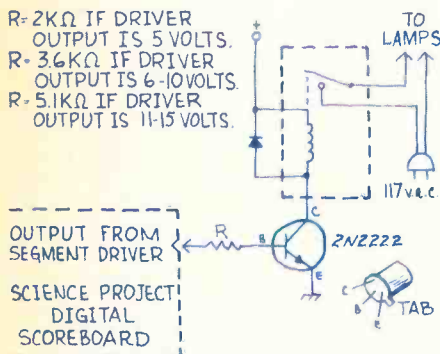 R=2KΩ IF DRIVER
OUTPUT IS 5 VOLTS.
R=3.6KΩ IF DRIVER
OUTPUT IS 6-10 VOLTS.
R=5.1KΩ IF DRIVER
OUTPUT IS 11-15 VOLTS.
+
TO
LAMPS
117 v.a.c.
C
R
B
2N2222
E
OUTPUT FROM
SEGMENT DRIVER
SCIENCE PROJECT
DIGITAL
SCOREBOARD
C
B
E
TAB